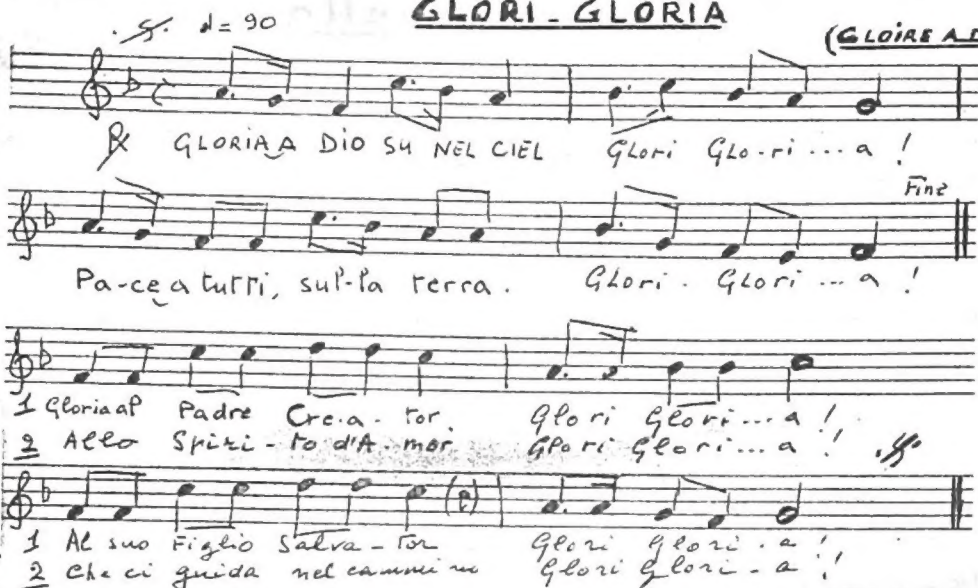 GLORI-GLORIA
♩ = 90
(GLOIRE A D
℟ GLORIA A DIO SU NEL CIEL Glori Glo-ri...a !
Fine
Pa-ce a tutti, sul-la terra. Glori. Glori...a !
1 Gloria al Padre Cre.a-tor, Glori Glori...a !
2 Allo Spiri-to d'A-mor, Glori Glori...a !
1 Al suo Figlio Salva-tor Glori Glori.a !
2 Che ci guida nel cammino Glori Glori-a !